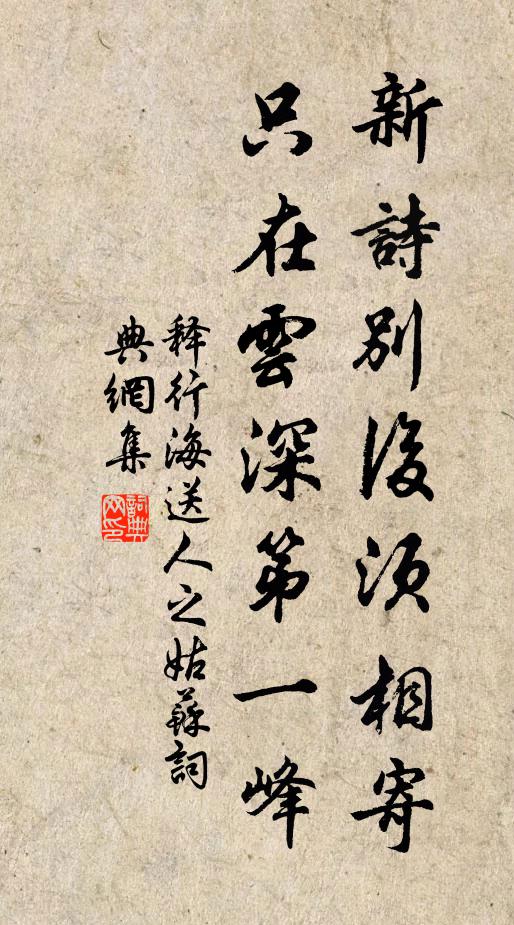 新詩別後須相寄
只在雲深第一峰
释行海送人之姑蘇詞
典網集
詞典網印